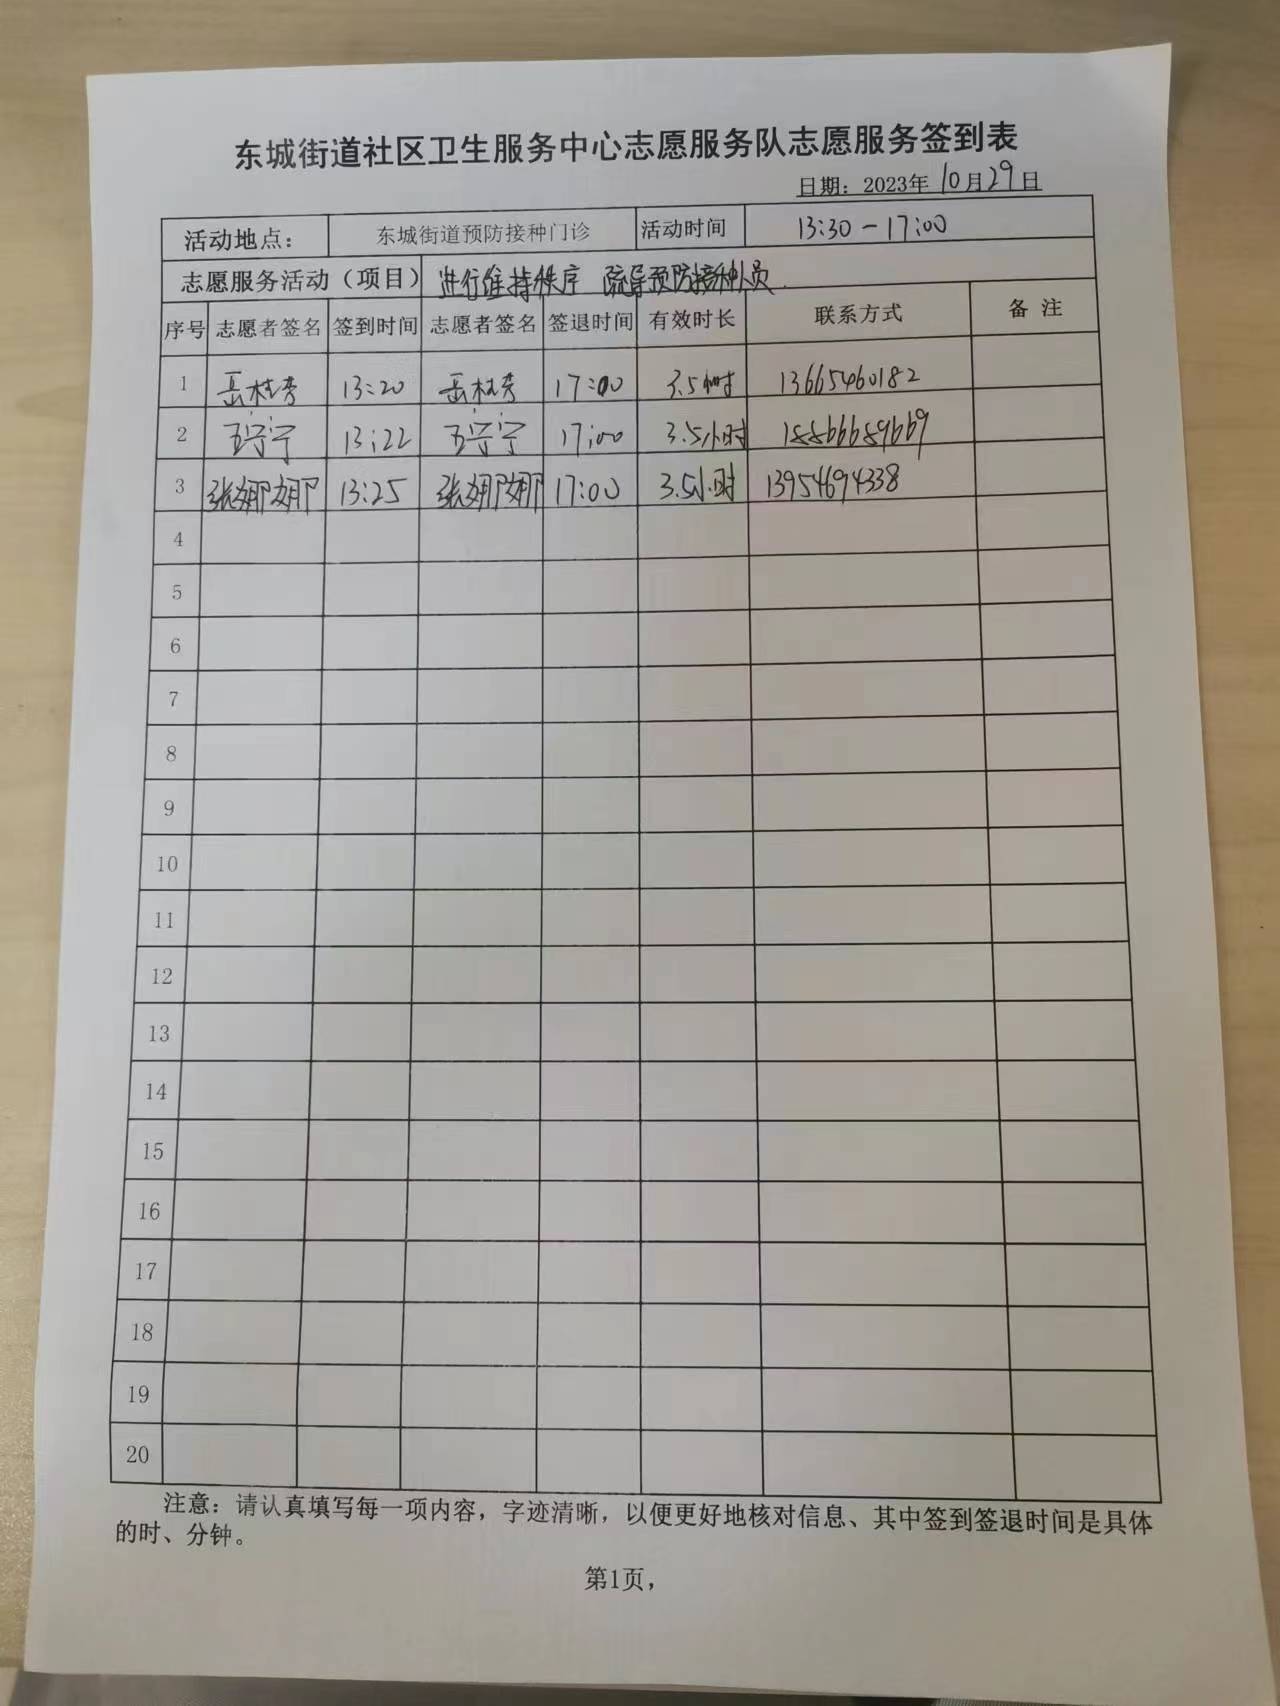 东城街道社区卫生服务中心志愿服务队志愿服务签到表
日期：2023年10月29日
活动地点： 东城街道预防接种门诊 活动时间 13:30-17:00
志愿服务活动（项目） 进行维持秩序 疏导预防接种人员.
序号 志愿者签名 签到时间 志愿者签名 签退时间 有效时长 联系方式 备注
1 岳桂芳 13:20 岳桂芳 17:00 3.5小时 13665460182
2 王宁宁 13:22 王宁宁 17:00 3.5小时 18866689669
3 张娜娜 13:25 张娜娜 17:00 3.5小时 13954694338
4
5
6
7
8
9
10
11
12
13
14
15
16
17
18
19
20
注意：请认真填写每一项内容，字迹清晰，以便更好地核对信息、其中签到签退时间是具体
的时、分钟。
第1页，